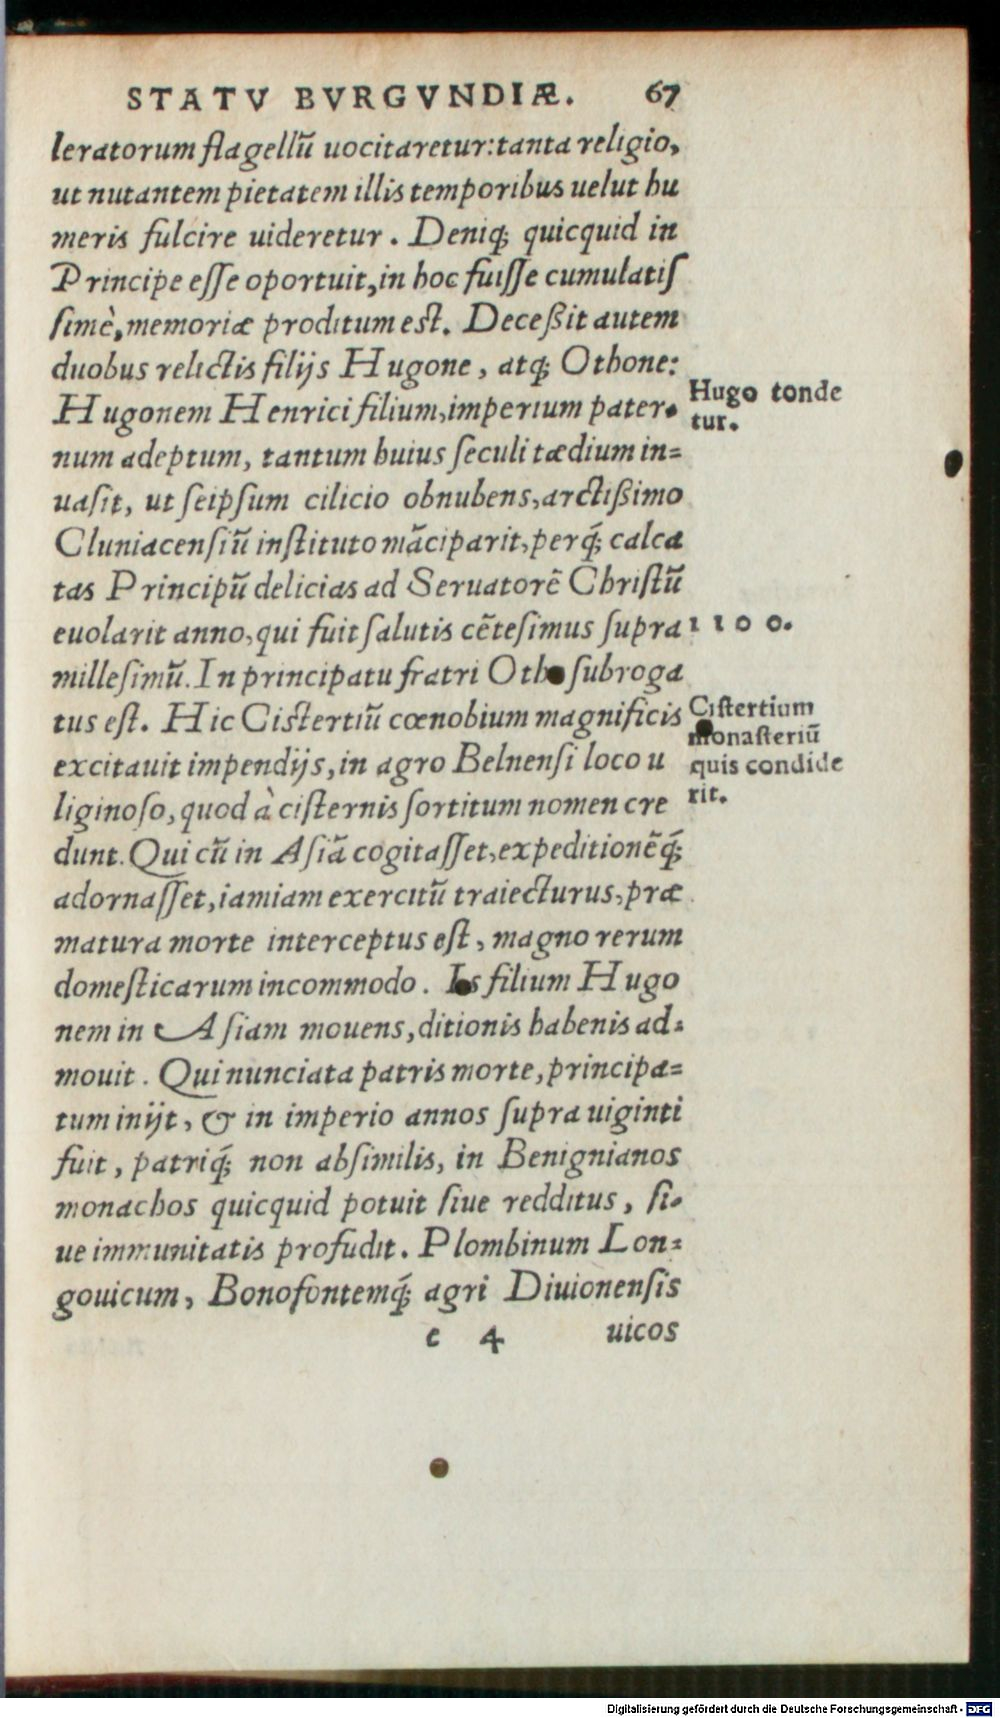 STATV BVRGVNDIÆ. 67
leratorum flagellũ uocitaretur: tanta religio,
ut nutantem pietatem illis temporibus uelut hu
meris fulcire uideretur. Deniq; quicquid in
Principe esse oportuit, in hoc fuisse cumulatis
simè, memoriæ proditum est. Deceßit autem
duobus relictis filijs Hugone, atq; Othone:
Hugonem Henrici filium, imperium pater-
Hugo tonde
tur.
num adeptum, tantum huius seculi tædium in-
uasit, ut seipsum cilicio obnubens, arctißimo
Cluniacensiũ instituto mãciparit, perq́; calca
tas Principũ delicias ad Seruatorẽ Christũ
euolarit anno, qui fuit salutis cẽtesimus supra
1100.
millesimũ. In principatu fratri Otho subroga
tus est. Hic Cistertiũ cœnobium magnificis
Cistertium
monasteriũ
quis condide
rit.
excitauit impendijs, in agro Belnensi loco u
liginoso, quod à cisternis sortitum nomen cre
dunt. Qui cũ in Asiã cogitasset, expeditionẽq́;
adornasset, iamiam exercitũ traiecturus, præ
matura morte interceptus est, magno rerum
domesticarum incommodo. Is filium Hugo
nem in Asiam mouens, ditionis habenis ad-
mouit. Qui nunciata patris morte, principa-
tum inijt, & in imperio annos supra uiginti
fuit, patriq́; non absimilis, in Benignianos
monachos quicquid potuit siue redditus, si-
ue immunitatis profudit. Plombinum Lon-
gouicum, Bonofontemq́; agri Diuionensis
e 4 uicos
Digitalisierung gefördert durch die Deutsche Forschungsgemeinschaft - DFG